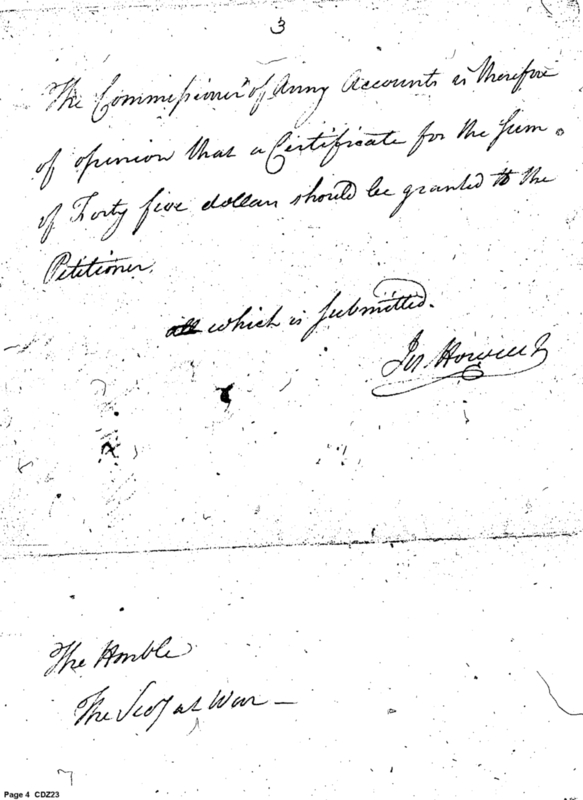 3
The Commissioner of Army Accounts is therefore
of opinion that a Certificate for the sum
of Forty five dollars should be granted to the
Petitioner.
all which is submitted.
Jos Howell
The Honble
The Secy at War —
Page 4 CDZ23